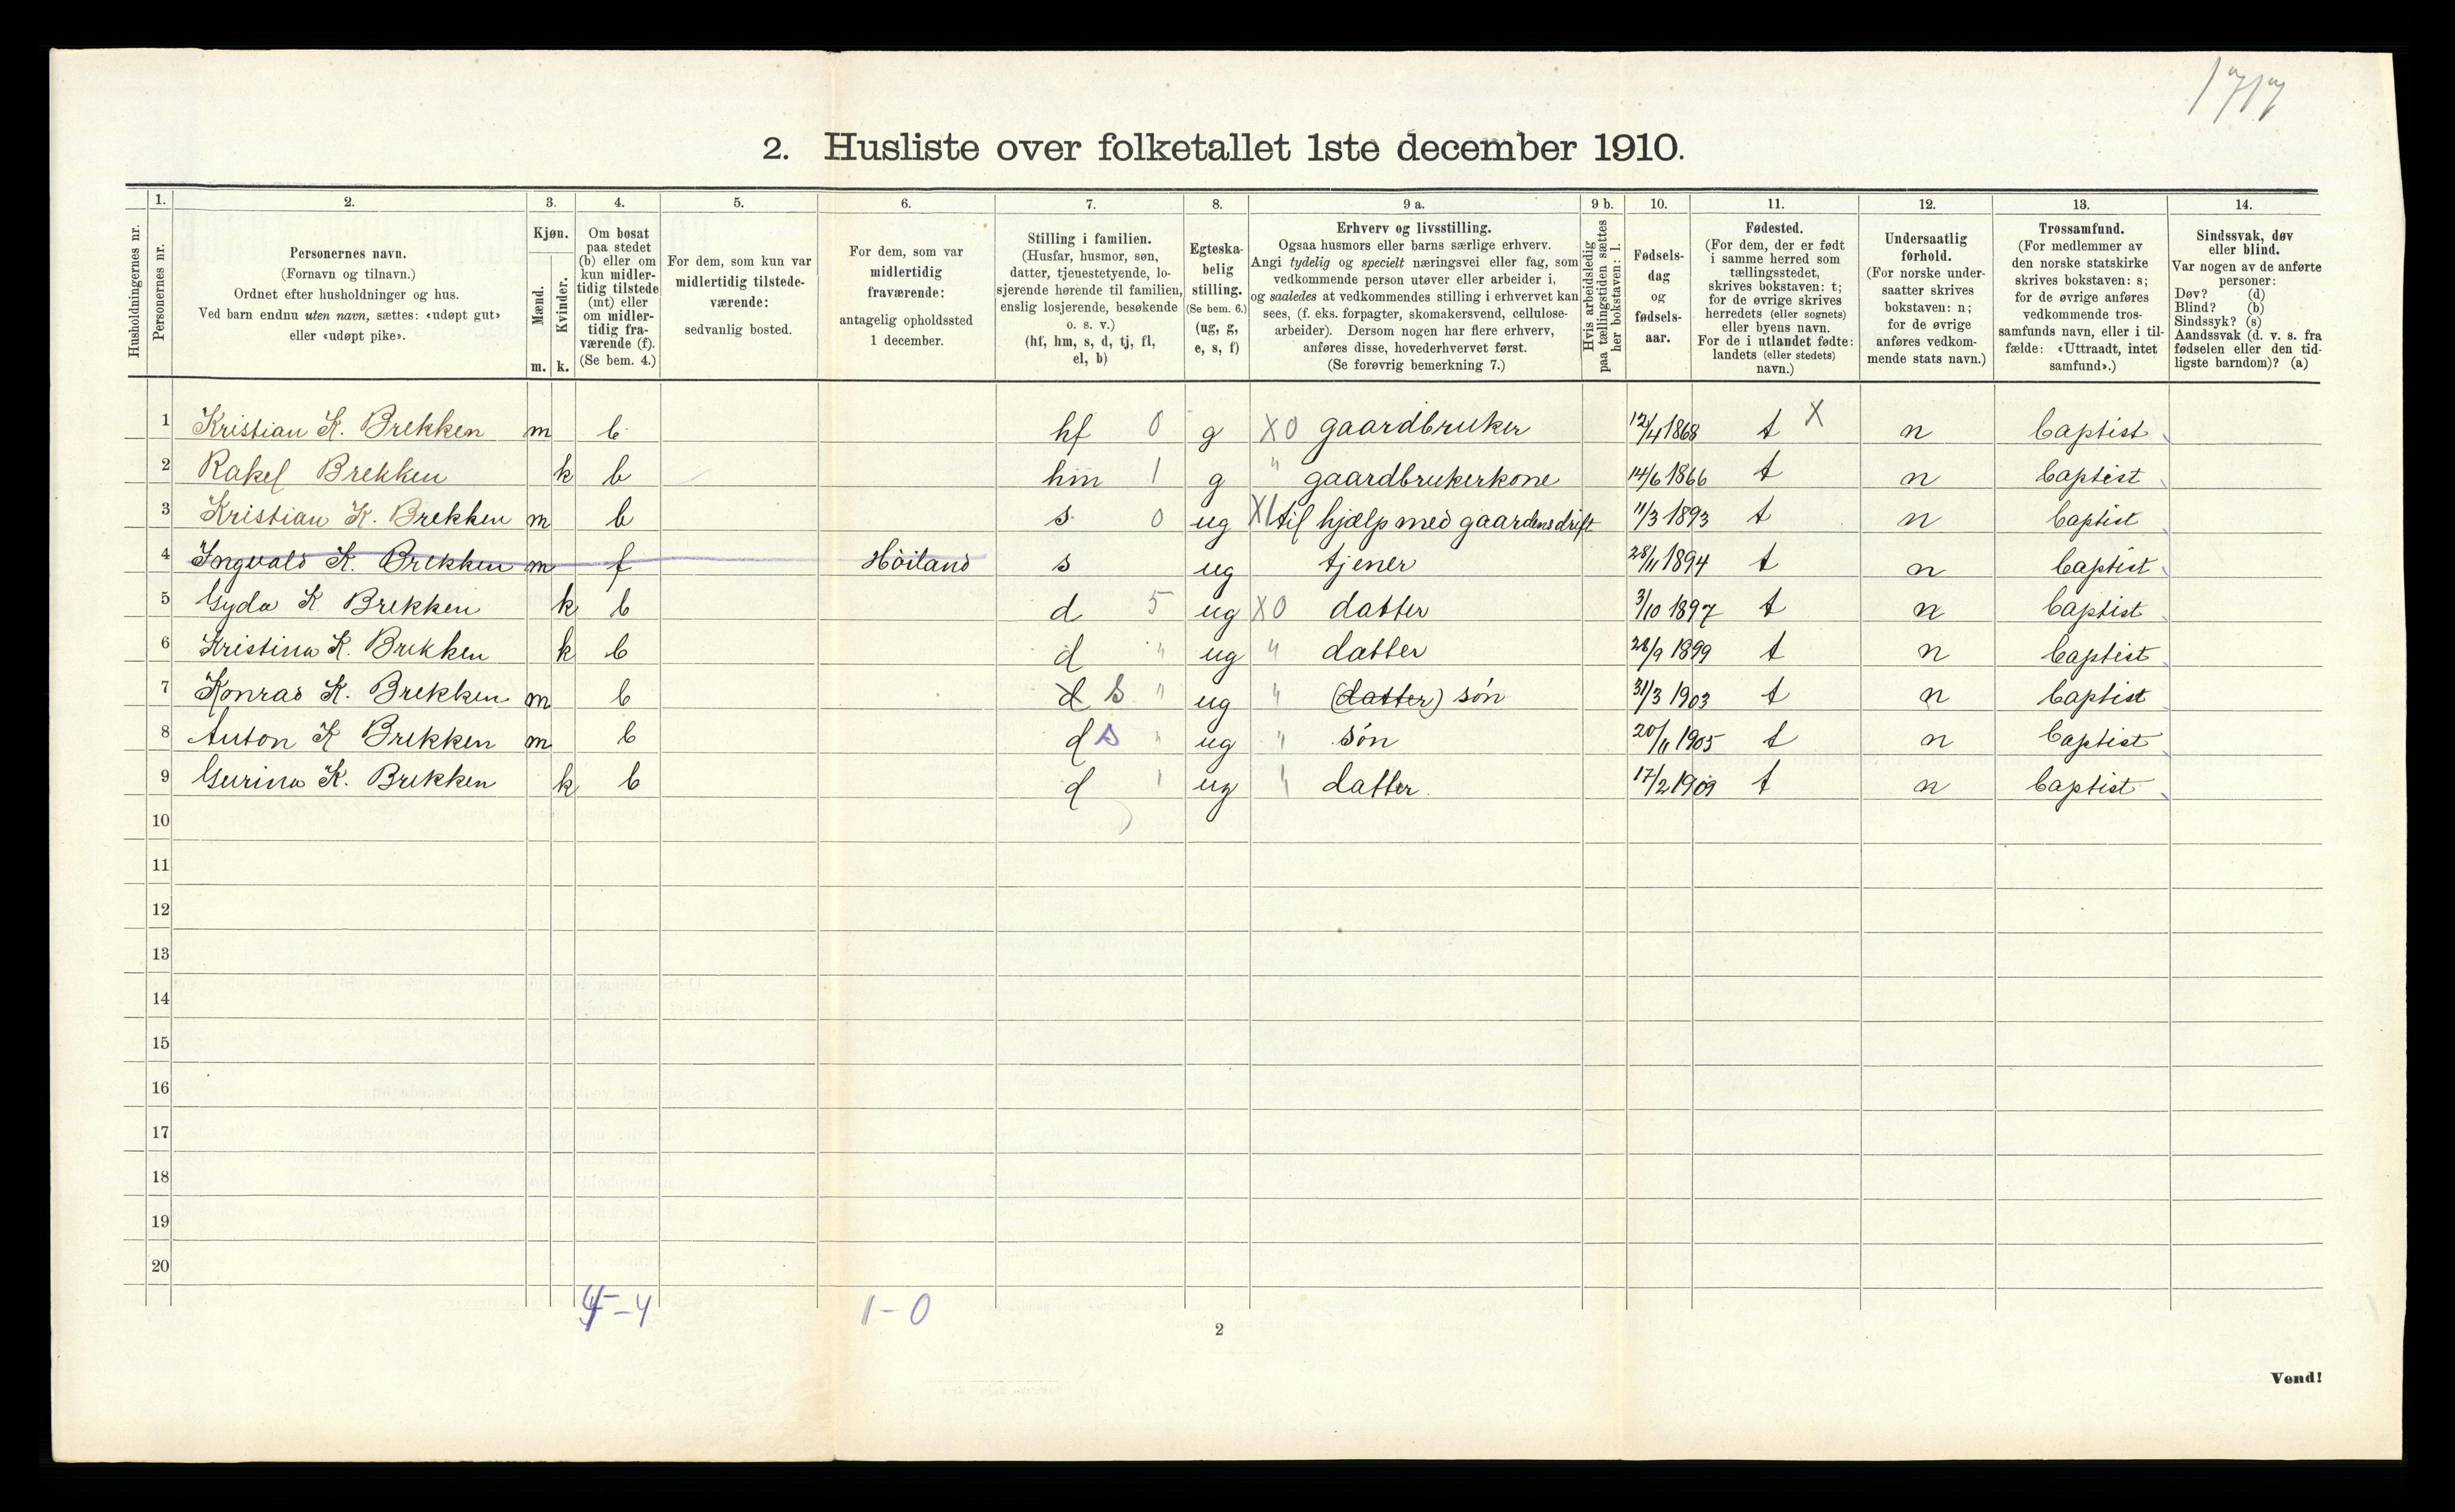 1717
2. Husliste over folketallet 1ste december 1910.
1. 2. 3. 4. 5. 6. 7. 8. 9 a. 9 b. 10. 11. 12. 13. 14.
Husholdningernes nr.
Personernes nr.
Personernes navn.
(Fornavn og tilnavn.)
Ordnet efter husholdninger og hus.
Ved barn endnu uten navn, sættes: «udøpt gut»
eller «udøpt pike».
Kjøn.
Mænd.
Kvinder.
m. k.
Om bosat
paa stedet
(b) eller om
kun midler-
tidig tilstede
(mt) eller
om midler-
tidig fra-
værende (f).
(Se bem. 4.)
For dem, som kun var
midlertidig tilstede-
værende:
sedvanlig bosted.
For dem, som var
midlertidig
fraværende:
antagelig opholdssted
1 december.
Stilling i familien.
(Husfar, husmor, søn,
datter, tjenestetyende, lo-
sjerende hørende til familien,
enslig losjerende, besøkende
o. s. v.)
(hf, hm, s, d, tj, fl,
el, b)
Egteska-
belig
stilling.
(Se bem. 6.)
(ug, g,
e, s, f)
Erhverv og livsstilling.
Ogsaa husmors eller barns særlige erhverv.
Angi tydelig og specielt næringsvei eller fag, som
vedkommende person utøver eller arbeider i,
og saaledes at vedkommendes stilling i erhvervet kan
sees, (f. eks. forpagter, skomakersvend, cellulose-
arbeider). Dersom nogen har flere erhverv,
anføres disse, hovederhvervet først.
(Se forøvrig bemerkning 7.)
Hvis arbeidsledig
paa tællingstiden sættes
her bokstaven: l.
Fødsels-
dag
og
fødsels-
aar.
Fødested.
(For dem, der er født
i samme herred som
tællingsstedet,
skrives bokstaven: t;
for de øvrige skrives
herredets (eller sognets)
eller byens navn.
For de i utlandet fødte:
landets (eller stedets)
navn.)
Undersaatlig
forhold.
(For norske under-
saatter skrives
bokstaven: n;
for de øvrige
anføres vedkom-
mende stats navn.)
Trossamfund.
(For medlemmer av
den norske statskirke
skrives bokstaven: s;
for de øvrige anføres
vedkommende tros-
samfunds navn, eller i til-
fælde: «Uttraadt, intet
samfund».)
Sindssvak, døv
eller blind.
Var nogen av de anførte
personer:
Døv? (d)
Blind? (b)
Sindssyk? (s)
Aandssvak (d. v. s. fra
fødselen eller den tid-
ligste barndom)? (a)
1 Kristian K. Brekken m b hf 0 g X0 gaardbruker 12/4 1868 t X n baptist
2 Rakel Brekken k b hm 1 g " gaardbrukerkone 14/6 1866 t n baptist
3 Kristian K. Brekken m b s 0 ug X1 til hjælp med gaardens drift 11/3 1893 t n baptist
4 Ingvald K. Brekken m f Höiland s ug tjener 28/11 1894 t n baptist
5 Gyda K Brekken k b d 5 ug X0 datter 3/10 1897 t n baptist
6 Kristina K. Brekken k b d " ug " datter 28/9 1899 t n baptist
7 Konrad K. Brekken m b d s " ug " (datter) søn 31/3 1903 t n baptist
8 Anton K Brekken m b d s " ug " søn 20/11 1905 t n baptist
9 Gurina K. Brekken k b d " ug " datter. 17/2 1909 t n baptist
10
11
12
13
14
15
16
17
18
19
20
4-4 1-0
2
Vend!